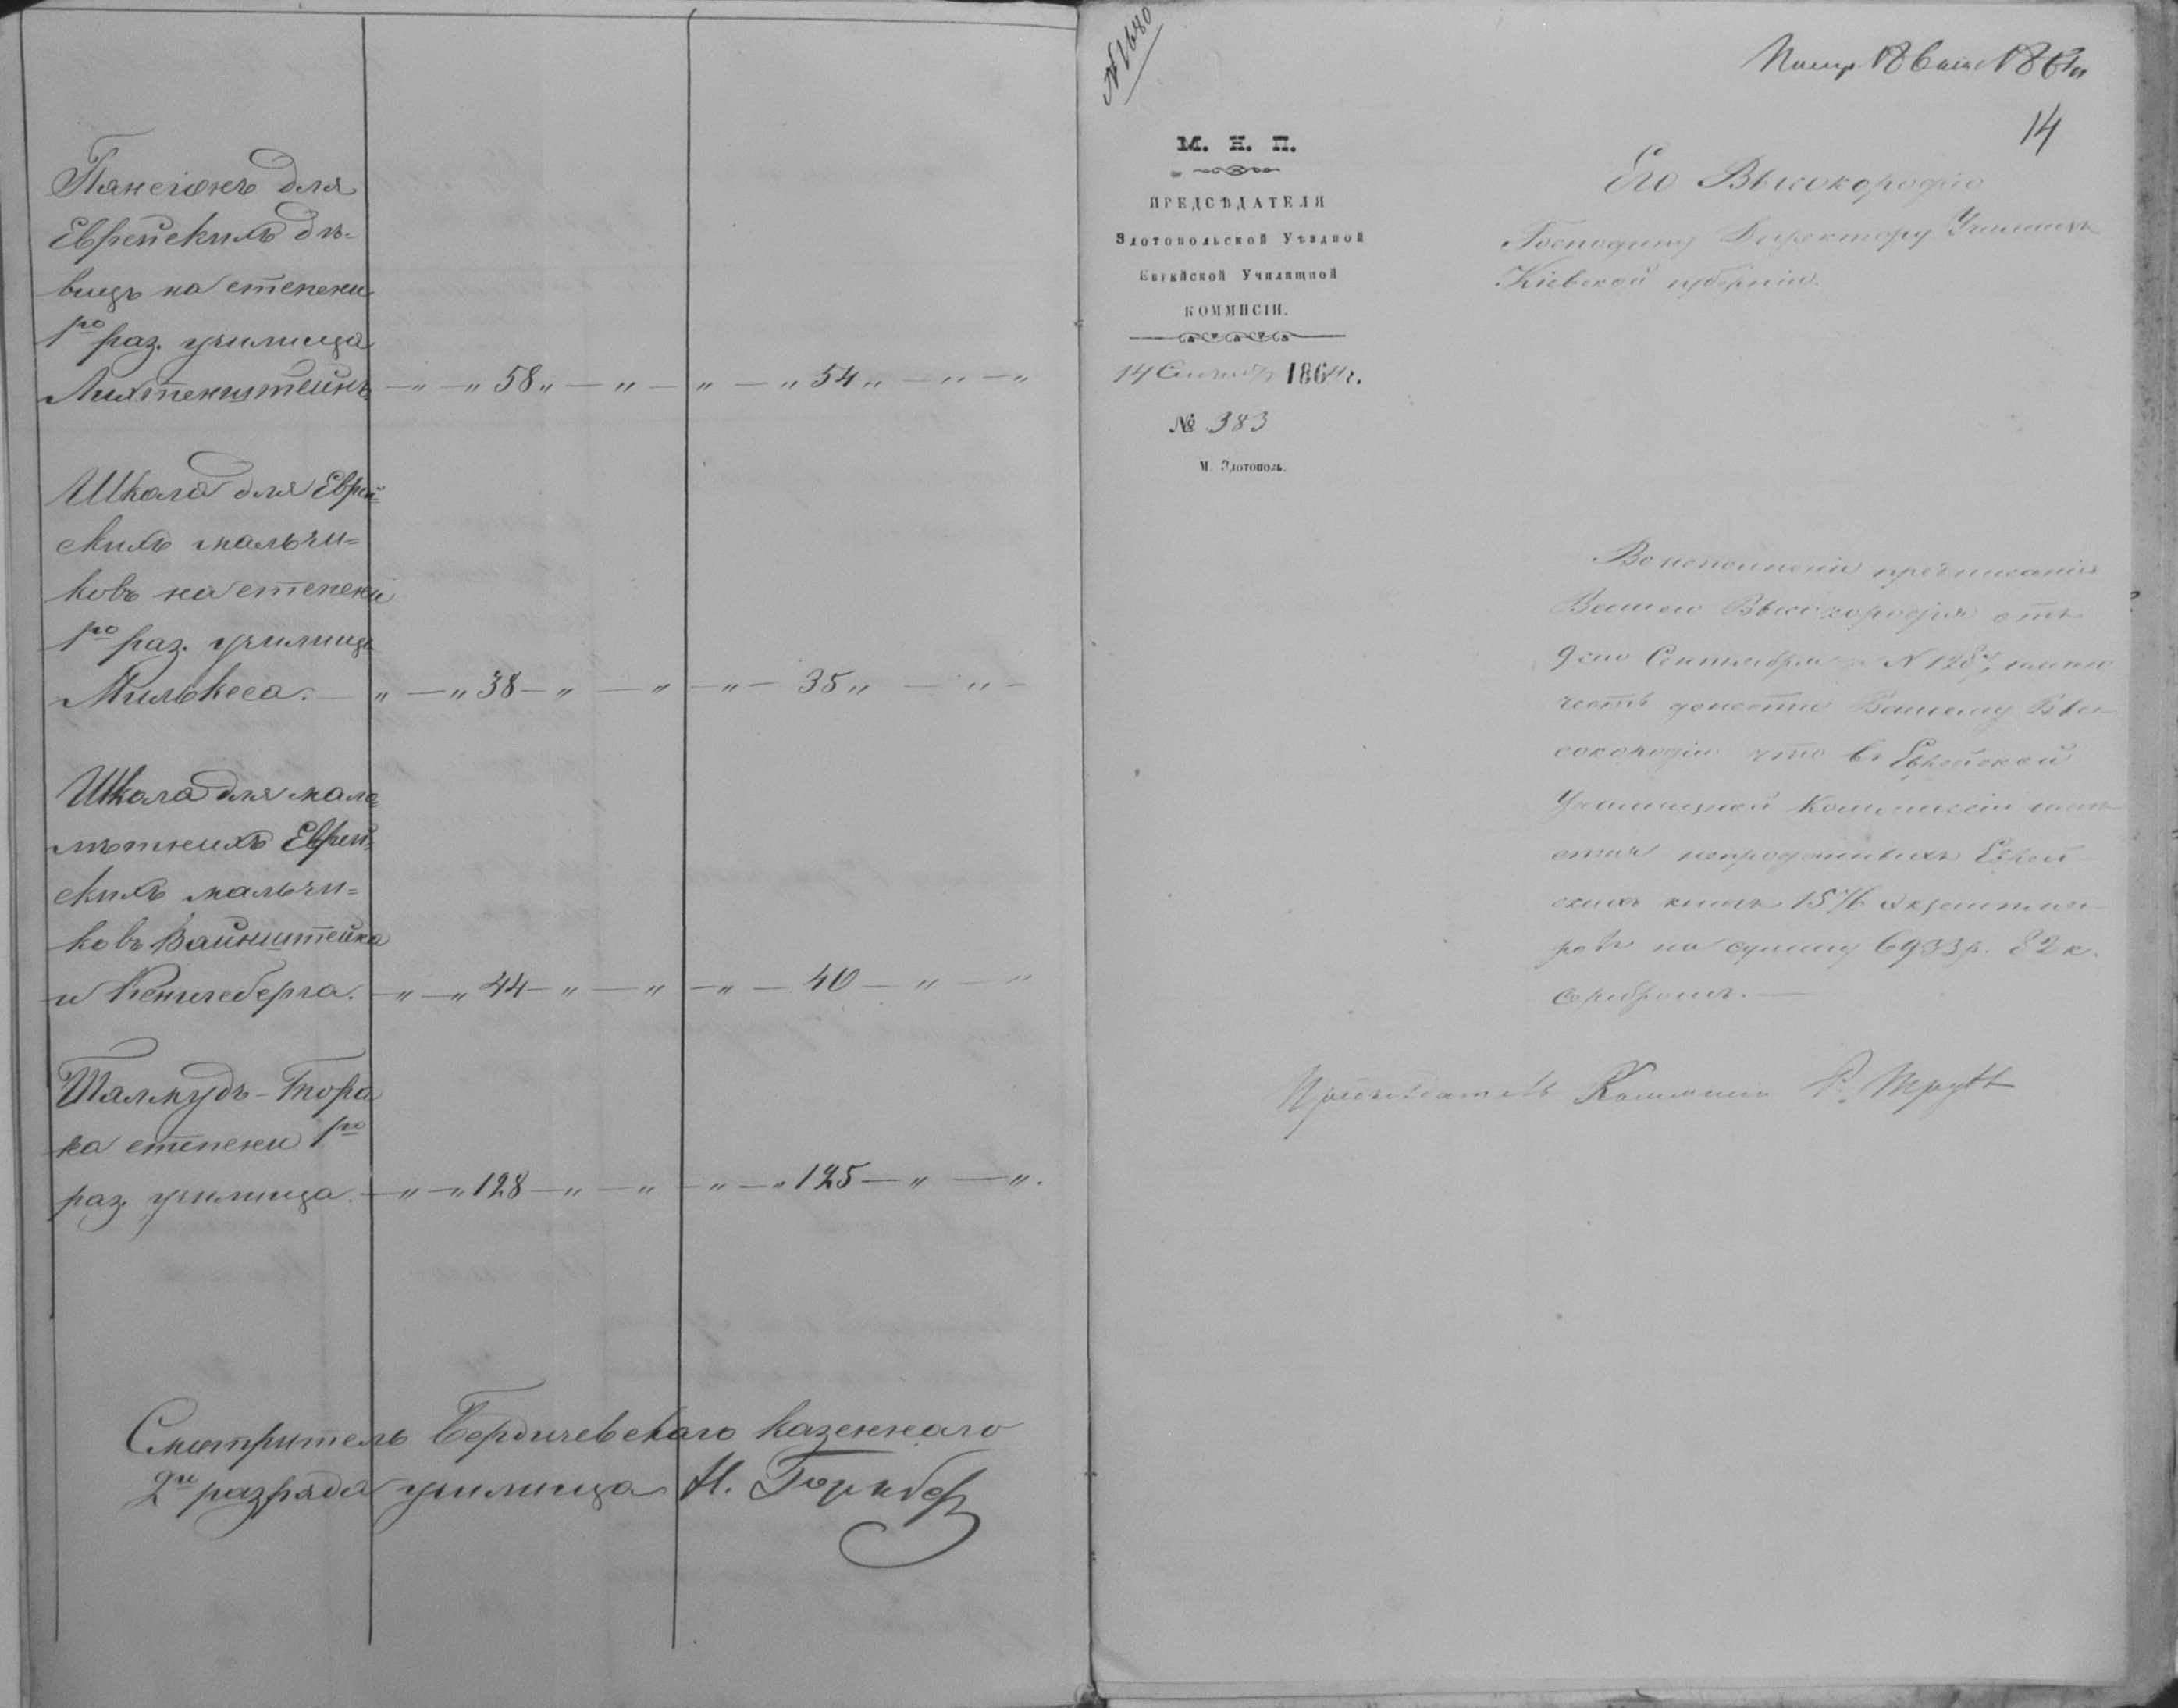 Пансіонъ для
Еврейскихъ дѣ-
вицъ на степени
1го раз. училища
Лихтенштейнъ — „ — „ 58 „ — „ — „ — „ 54 „ — „ — „
Школа для Еврей-
скихъ мальчи-
ковъ на степени
1го раз. училища
Милькеса. — „ — „ 38 — „ — „ — „ — 35 „ — „ —
Школа для мало-
лѣтнихъ Еврей-
скихъ мальчи-
ковъ Вайнштейна
и Кенигсберга. — „ — „ 44 — „ — „ — „ — 40 — „ — „
Талмудъ-Тора
на степени 1го
раз. училища. — „ — „ 128 — „ — „ — „ — „ 125 — „ — „.
Смотритель Бердичевскаго казеннаго
2го разряда училища
№ 1680
14
М. Н. П.
ПРЕДСѢДАТЕЛЯ
Златопольской Уѣздной
Еврейской Училищной
КОММИСІИ.
14 Сентября 1864 г.
№ 383
М. Златополь.
Его Высокородію
Господину Директору Училищъ
Кіевской губерніи.
Во исполненіе предписанія
Вашего Высокородія отъ
9 сего Сентября № имѣю
честь донести Вашему Вы-
сокородію что въ Еврейской
Училищной Коммисіи имѣ-
ется непроданныхъ Еврей-
скихъ книгъ 1516 экземпля-
ровъ на сумму 6933 р. 82 к.
серебромъ. —
Предсѣдатель Коммисіи